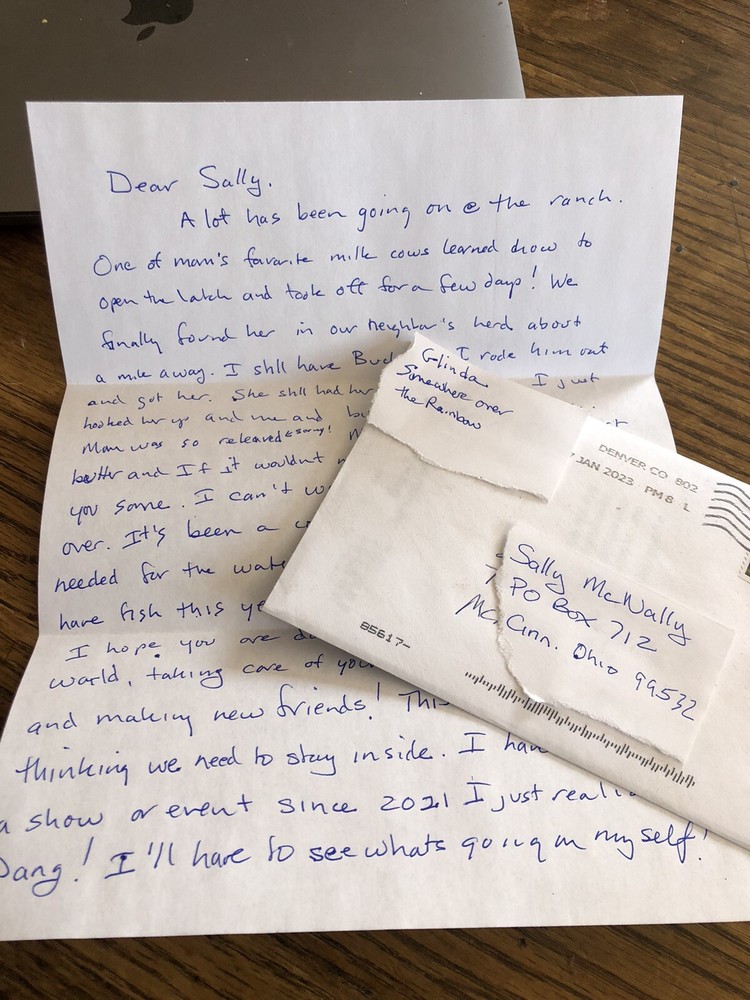 Dear Sally.
A lot has been going on @ the ranch.
One of mom's favorite milk cows learned how to
open the latch and took off for a few days! We
finally found her in our neighbor's herd about
a mile away. I still have I rode him out
and got her. She still had her I just
hooked her up and me and
Mom was so released ← sorry!
better and If it wouldnt
you some. I can't
over. It's been a
needed for the
have fish this
I hope you are
world, taking care of
and making new friends!
thinking we need to stay inside. I
a show or event since 2021 I just
Dang! I'll have to see whats going on myself!
Glinda
Somewhere over
the Rainbow
DENVER CO 802
JAN 2023 PM 8 L
Sally McNally
PO Box 712
McCinn. Ohio 99532
85617-